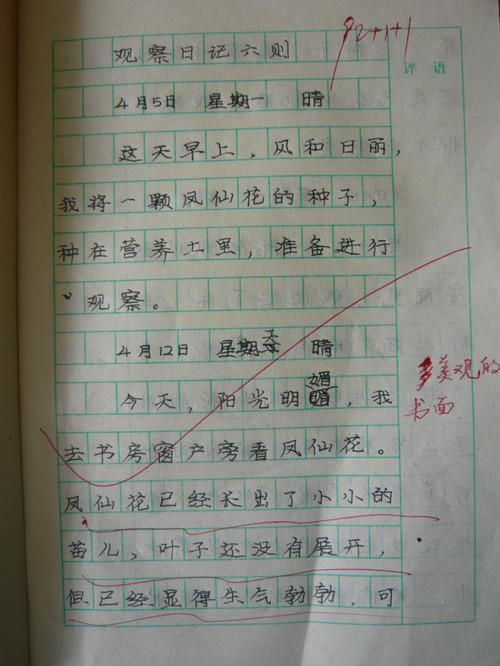 92+1+1
观察日记六则
评语
4月5日 星期一 晴
这天早上，风和日丽，
我将一颗凤仙花的种子，
种在营养土里，准备进行
观察。
4月12日 星期天 晴
今天，阳光明媚，我
多美观的
书面
去书房窗户旁看凤仙花。
凤仙花已经长出了小小的
苗儿，叶子还没有展开，
但已经显得生气勃勃，可